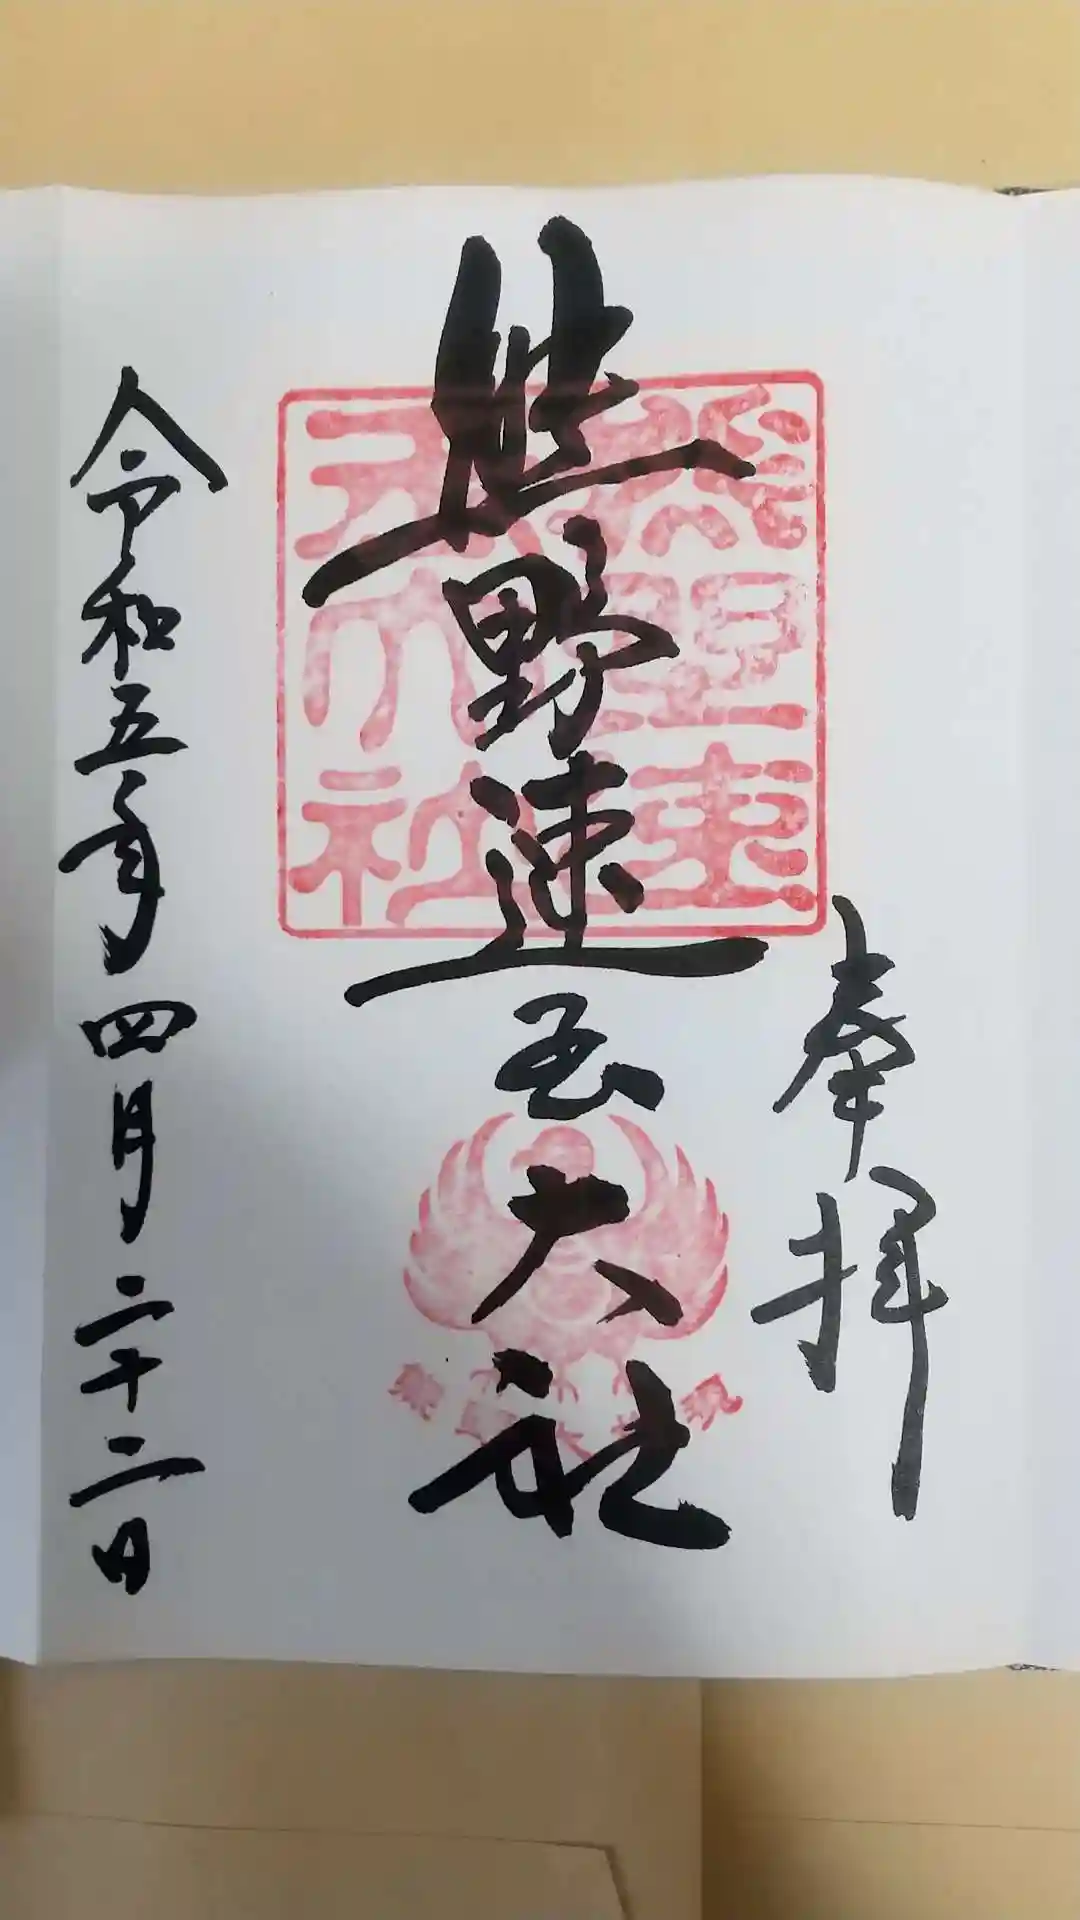 奉拝
熊野速玉大社
令和五年四月二十二日
熊野速玉大社